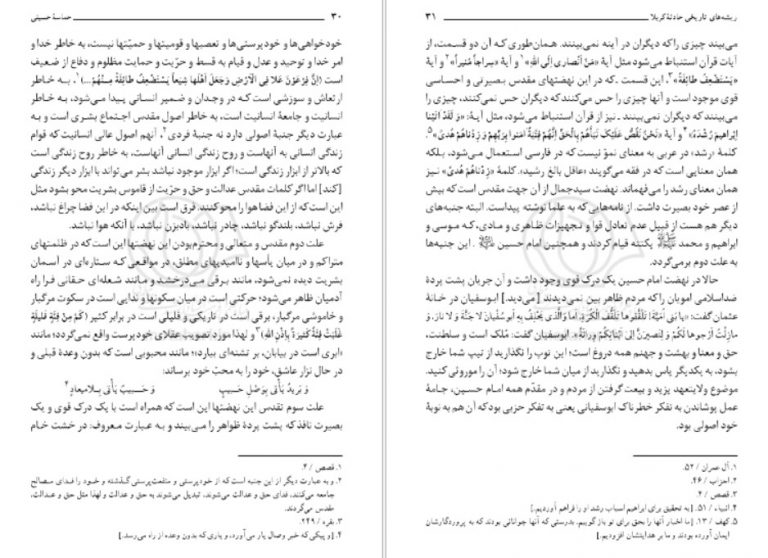 ۳۰ حماسهٔ حسینی
خودخواهی‌ها و خودپرستی‌ها و تعصبها و قومیتها و حمیّتها نیست، به خاطر خدا و
امر خدا و توحید و عدل و قیام به قسط و حریّت و حمایت مظلوم و دفاع از ضعیف
است (إنَّ فِرْعَوْنَ عَلا فِی الْاَرْضِ وَجَعَلَ اَهْلَها شِیَعاً یَسْتَضْعِفُ طائِفَةً مِنْهُمْ...)۱، به خاطر
ارتعاش و سوزشی است که در وجدان و ضمیر انسانی پیدا می‌شود، به خاطر
انسانیت و جامعهٔ انسانیت است، به خاطر اصول مقدس اجتماع بشری است و به
عبارت دیگر جنبهٔ اصولی دارد نه جنبهٔ فردی۲. آنهم اصول عالی انسانیت که قوام
زندگی انسانی به آنهاست و روح زندگی انسانی آنهاست، به خاطر روح زندگی است
که بالاتر از ابزار زندگی است؛ اگر ابزار موجود نباشد بشر می‌تواند با ابزار دیگر زندگی
[کند] اما اگر کلمات مقدس عدالت و حق و حرّیت از قاموس بشریت محو بشود مثل
این است که از این فضا هوا را محو کنند. فرق است بین اینکه در این فضا چراغ نباشد،
فرش نباشد، بلندگو نباشد، چادر نباشد، بادبزن نباشد، با آنکه هوا نباشد.
علت دوم مقدس و متعالی و محترم‌بودن این نهضتها این است که در ظلمتهای
متراکم و در میان یأسها و ناامیدیهای مطلق، در مواقعی که ستاره‌ای در آسمان
بشریت دیده نمی‌شود، مانند برقی می‌درخشد و مانند شعله‌ای حقانی فرا راه
آدمیان ظاهر می‌شود؛ حرکتی است در میان سکونها و ندایی است در سکوت مرگبار
و خاموشی مرگبار، برقی است در تاریکی و قلیلی است در برابر کثیر (کَمْ مِنْ فِئَةٍ قَلیلَةٍ
غَلَبَتْ فِئَةً کَثیرَةً بِإذْنِ اللهِ)۳ و لهذا مورد تصویب عقلای خودپرست واقع نمی‌گردد؛ مانند
«ابری است در بیابان، بر تشنه‌ای ببارد»؛ مانند محبوبی است که بدون وعدهٔ قبلی و
در حال نزار عاشق، خود را به محبّ خود برساند:
وَ بَریدٌ یَأْتی بِوَصْلِ حَبیبٍ وَ حَبیبٌ یَأْتی بِلامیعادٍ۴
علت سوم تقدس این نهضتها این است که همراه است با یک درک قوی و یک
بصیرت نافذ که پشت پردهٔ ظواهر را می‌بیند و به عبارت معروف: در خشت خام
۱. قصص / ۴.
۲. و به عبارت دیگر از این جنبه است که از خودپرستی و منفعت‌پرستی گذشته و خود را فدای مصالح
جامعه می‌کنند، فدای حق و عدالت می‌شوند، تبدیل می‌شوند به حق و عدالت و لهذا مثل حق و عدالت،
مقدس می‌گردند.
۳. بقره / ۲۴۹.
۴. [و پیکی که خبر وصال یار می‌آورد، و یاری که بدون وعده از راه می‌رسد.]
ریشه‌های تاریخی حادثهٔ کربلا ۳۱
می‌بیند چیزی را که دیگران در آینه نمی‌بینند. همان‌طوری که آن دو قسمت، از
آیات قرآن استنباط می‌شود مثل آیهٔ «مَنْ أنْصاری إلَی اللهِ»۱ و آیهٔ «وَسِراجاً مُنیراً»۲ و آیهٔ
«یَسْتَضْعِفُ طائِفَةً»۳، این قسمت ـ که در این نهضتهای مقدس بصیرتی و احساسی
قوی موجود است و آنها چیزی را حس می‌کنند که دیگران حس نمی‌کنند، چیزی را
می‌بینند که دیگران نمی‌بینند ـ نیز از قرآن استنباط می‌شود، مثل آیهٔ: «وَ لَقَدْ اتَیْنا
اِبْراهیمَ رُشْدَهُ»۴ و آیهٔ «نَحْنُ نَقُصُّ عَلَیْکَ نَبَأَهُمْ بِالْحَقِّ إنَّهُمْ فِتْیَةٌ امَنوا بِرَبِّهِمْ وَ زِدْناهُمْ هُدیً»۵
کلمهٔ «رشد» در عربی به معنای نموّ نیست که در فارسی استعمال می‌شود، بلکه
همان معنایی است که در فقه می‌گویند «عاقل بالغ رشید». کلمهٔ «زِدْناهُمْ هُدیً» نیز
همان معنای رشد را می‌فهماند. نهضت سیدجمال از آن جهت مقدس است که بیش
از عصر خود بصیرت داشت. از نامه‌هایی که به علما نوشته پیداست. البته جنبه‌های
دیگر هم هست از قبیل عدم تعادل قوا و تجهیزات ظاهری و مادی، که موسی و
ابراهیم و محمد یکتنه قیام کردند و همچنین امام حسین. این جنبه‌ها
به علت دوم برمی‌گردد.
حالا در نهضت امام حسین یک درک قوی وجود داشت و آن جریان پشت پردهٔ
ضداسلامی امویان را که مردم ظاهر بین نمی‌دیدند [می‌دید.] ابوسفیان در خانهٔ
عثمان گفت: «یا بَنی اُمَیَّةَ! تَلَقَّفوها تَلَقُّفَ الْکُرَةِ، اَما وَالَّذی یَحْلِفُ بِهِ اَبوسُفْیانَ لا جَنَّةَ وَ لا نارَ، وَ
مازِلْتُ اَرْجوها لَکُمْ وَ لَتَصیرَنَّ إلی اَبْنائِکُمْ وِراثَةً.» ابوسفیان گفت: مُلک است و سلطنت،
حق و معنا و بهشت و جهنم همه دروغ است؛ این توپ را نگذارید از تیپ شما خارج
بشود، به یکدیگر پاس بدهید و نگذارید از میان شما خارج شود؛ آن را موروثی کنید.
موضوع ولایتعهد یزید و بیعت گرفتن از مردم و در مقدّم همه امام حسین، جامهٔ
عمل پوشاندن به تفکر خطرناک ابوسفیانی یعنی به تفکر حزبی بود که آن هم به نوبهٔ
خود اصولی بود.
۱. آل عمران / ۵۲.
۲. احزاب / ۴۶.
۳. قصص / ۴.
۴. انبیاء / ۵۱. [به تحقیق برای ابراهیم اسباب رشد او را فراهم آوردیم.]
۵. کهف / ۱۳. [ما اخبار آنها را بحق برای تو باز گوییم. بدرستی که آنها جوانانی بودند که به پروردگارشان
ایمان آورده بودند و ما بر هدایتشان افزودیم.]